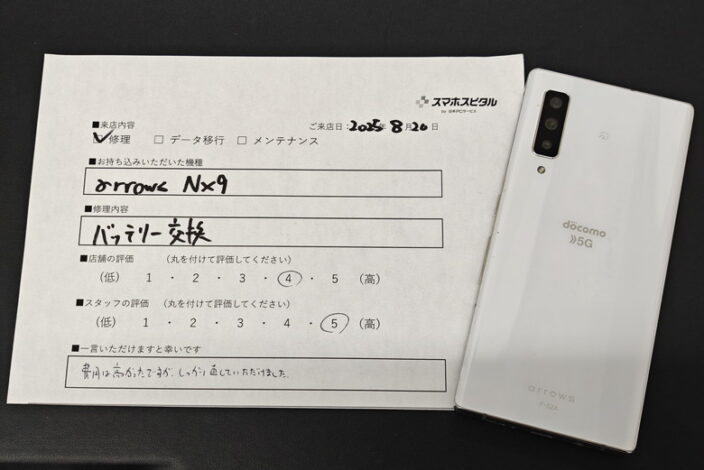 スマホスピタル
by 日本PCサービス
■来店内容
ご来店日：2025年8月20日
☑ 修理 □ データ移行 □ メンテナンス
■お持ち込みいただいた機種
arrows NX9
■修理内容
バッテリー交換
■店舗の評価 （丸を付けて評価してください）
（低） 1 ・ 2 ・ 3 ・ 4 ・ 5 （高）
■スタッフの評価 （丸を付けて評価してください）
（低） 1 ・ 2 ・ 3 ・ 4 ・ 5 （高）
■一言いただけますと幸いです
費用は高かったですが、しっかり直していただけました。
docomo
5G
arrows
F-52A